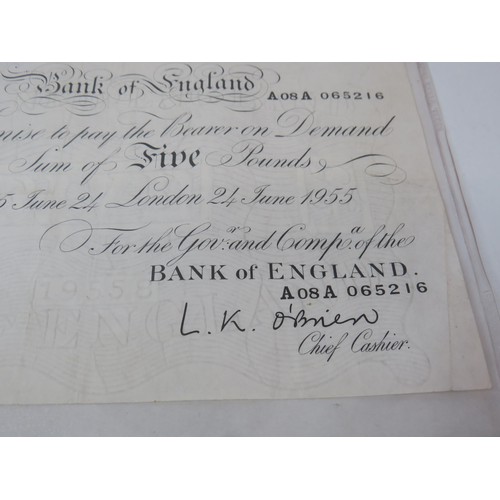 Bank of England A08A 065216
mise to pay the Bearer on Demand
Sum of Five Pounds
5 June 24 London 24 June 1955
For the Govr. and Compa. of the
BANK of ENGLAND.
A08A 065216
L. K. O'Brien
Chief Cashier.